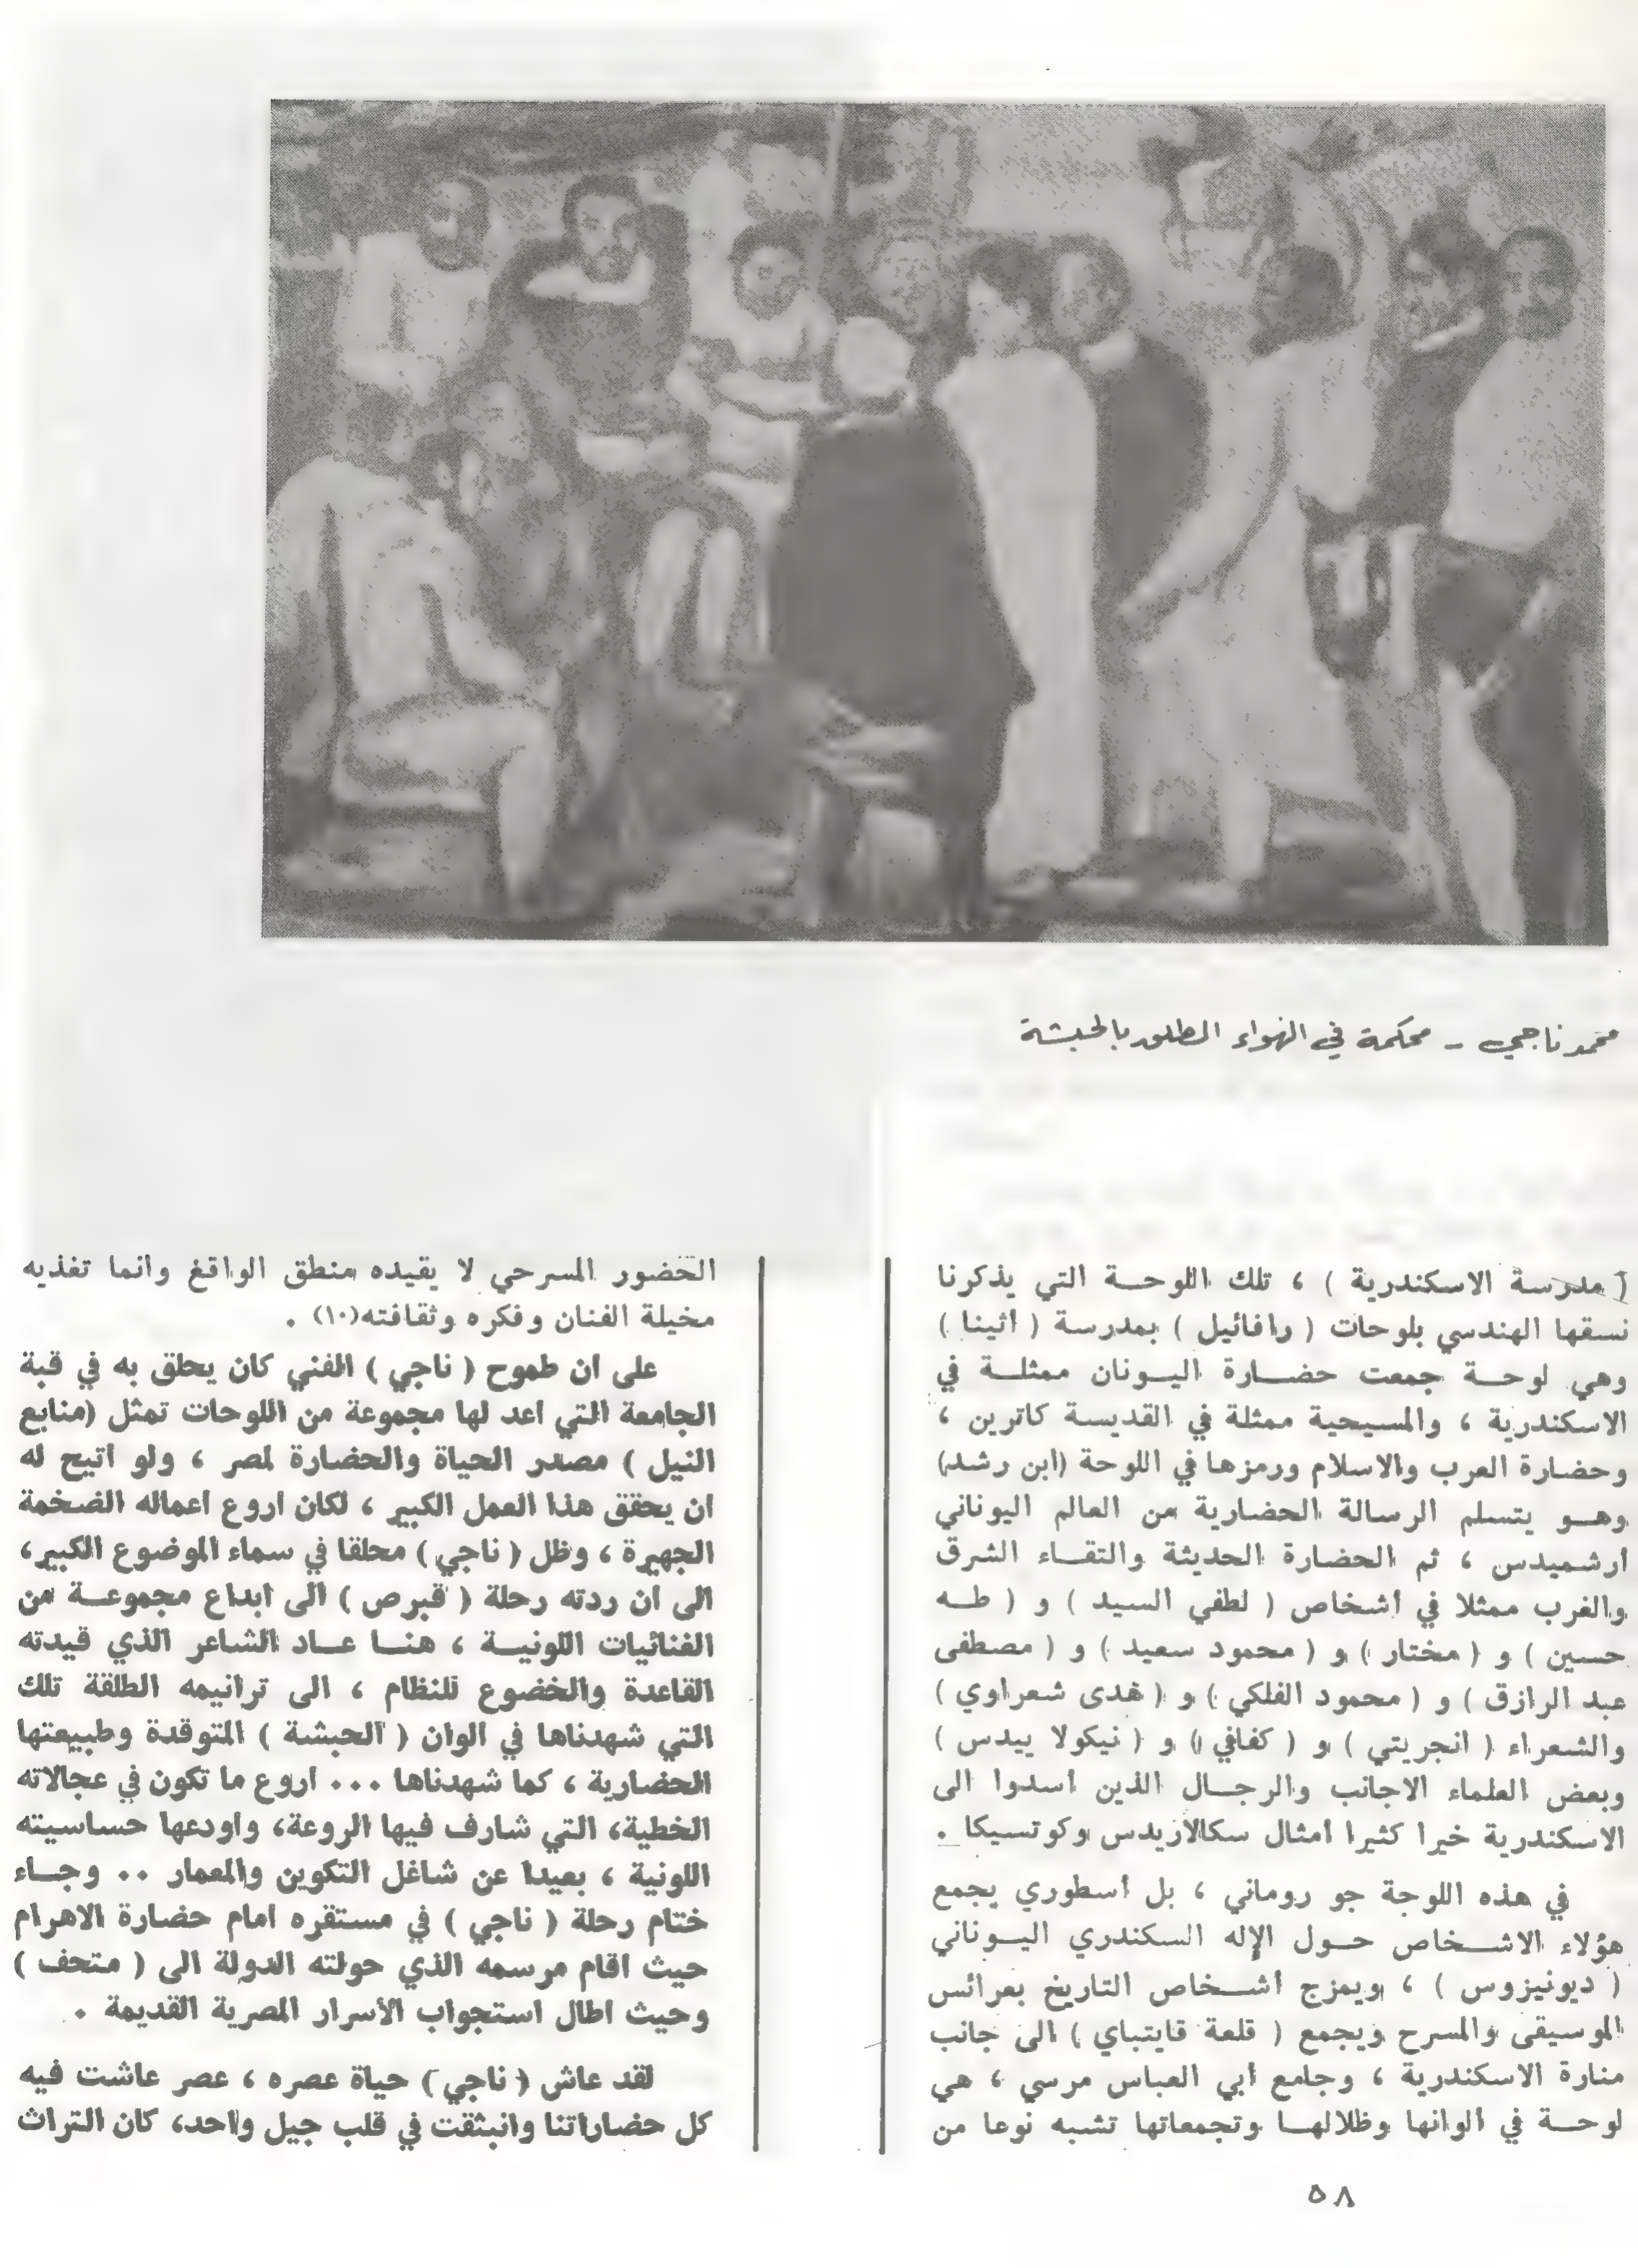 محمد ناجي - محكمة في الهواء الطلق بالحبشة
( مدرسة الاسكندرية ) ، تلك اللوحـــة التي يذكرنا
نسقها الهندسي بلوحات ( رافائيل ) بمدرسة ( أثينا )
وهي لوحـــة جمعت حضـــارة اليـــونان ممثلـــة في
الاسكندرية ، والمسيحية ممثلة في القديسة كاترين ،
وحضارة العرب والاسلام ورمزها في اللوحة (ابن رشد)
وهـــو يتسلم الرسالة الحضارية من العالم اليوناني
أرشميدس ، ثم الحضارة الحديثة والتقـــاء الشرق
والغرب ممثلا في أشخاص ( لطفي السيد ) و ( طـــه
حسين ) و ( مختار ) و ( محمود سعيد ) و ( مصطفى
عبد الرازق ) و ( محمود الفلكي ) و ( هدى شعراوي )
والشعراء ( انجريتي ) و ( كفافي ) و ( نيكولا ييدس )
وبعض العلماء الاجانب والرجـــال الذين أسدوا الى
الاسكندرية خيرا كثيرا أمثال سكالاريدس وكوتسيكا .
في هذه اللوحة جو روماني ، بل أسطوري يجمع
هؤلاء الاشـــخاص حـــول الإله السكندري اليـــوناني
( ديونيزوس ) ، ويمزج أشـــخاص التاريخ بعرائس
الموسيقى والمسرح ويجمع ( قلعة قايتباي ) الى جانب
منارة الاسكندرية ، وجامع أبي العباس مرسي ، هي
لوحـــة في ألوانها وظلالهـــا وتجمعاتها تشبه نوعا من
الحضور المسرحي لا يقيده منطق الواقع وانما تغذيه
مخيلة الفنان وفكره وثقافته(١٠) .
على ان طموح ( ناجي ) الفني كان يحلق به في قبة
الجامعة التي اعد لها مجموعة من اللوحات تمثل (منابع
النيل ) مصدر الحياة والحضارة لمصر ، ولو اتيح له
ان يحقق هذا العمل الكبير ، لكان اروع اعماله الضخمة
الجهيرة ، وظل ( ناجي ) محلقا في سماء الموضوع الكبير،
الى ان ردته رحلة ( قبرص ) الى ابداع مجموعـــة من
الغنائيات اللونيـــة ، هنـــا عـــاد الشاعر الذي قيدته
القاعدة والخضوع للنظام ، الى ترانيمه الطلقة تلك
التي شهدناها في الوان ( الحبشة ) المتوقدة وطبيعتها
الحضارية ، كما شهدناها ... اروع ما تكون في عجالاته
الخطية، التي شارف فيها الروعة، واودعها حساسيته
اللونية ، بعيدا عن شاغل التكوين والمعمار .. وجـــاء
ختام رحلة ( ناجي ) في مستقره امام حضارة الاهرام
حيث اقام مرسمه الذي حولته الدولة الى ( متحف )
وحيث اطال استجواب الأسرار المصرية القديمة .
لقد عاش ( ناجي ) حياة عصره ، عصر عاشت فيه
كل حضاراتنا وانبثقت في قلب جيل واحد، كان التراث
٥٨